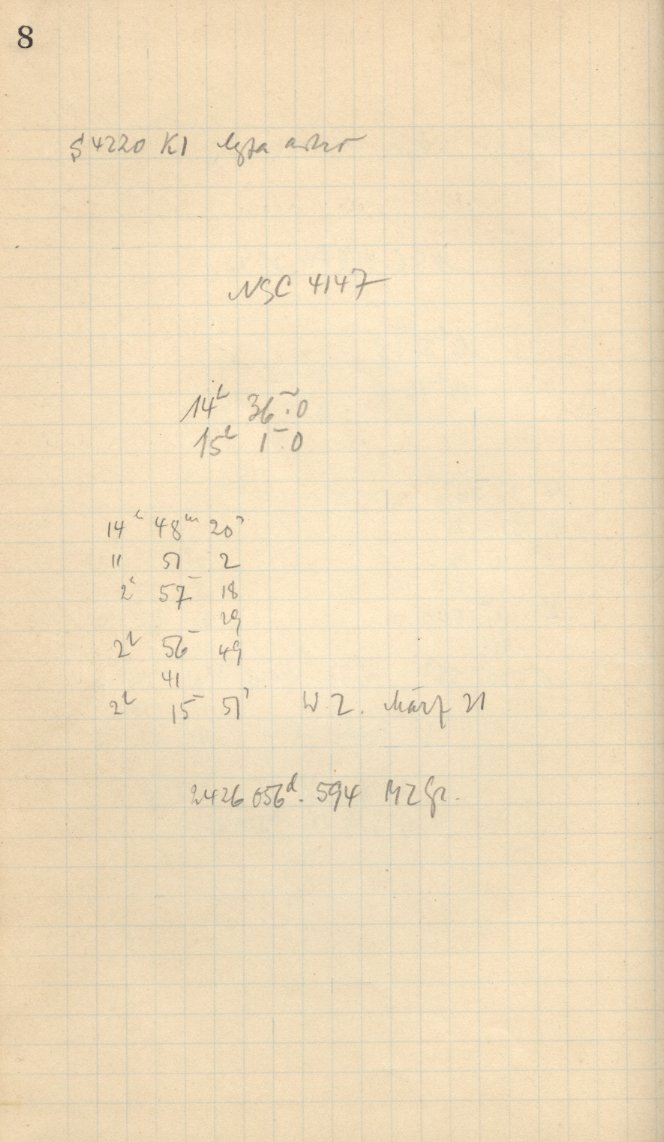 8
S 4220 K1 Agfa astro
NGC 4147
14ʰ 36ᵐ.0
15ʰ 1ᵐ.0
14ʰ 48ᵐ 20ˢ
11 51 2
2ʰ 57ᵐ 18
29
2ʰ 56ᵐ 49
41
2ʰ 15ᵐ 51ˢ WZ. März 21
2426 056ᵈ.594 MZGr.